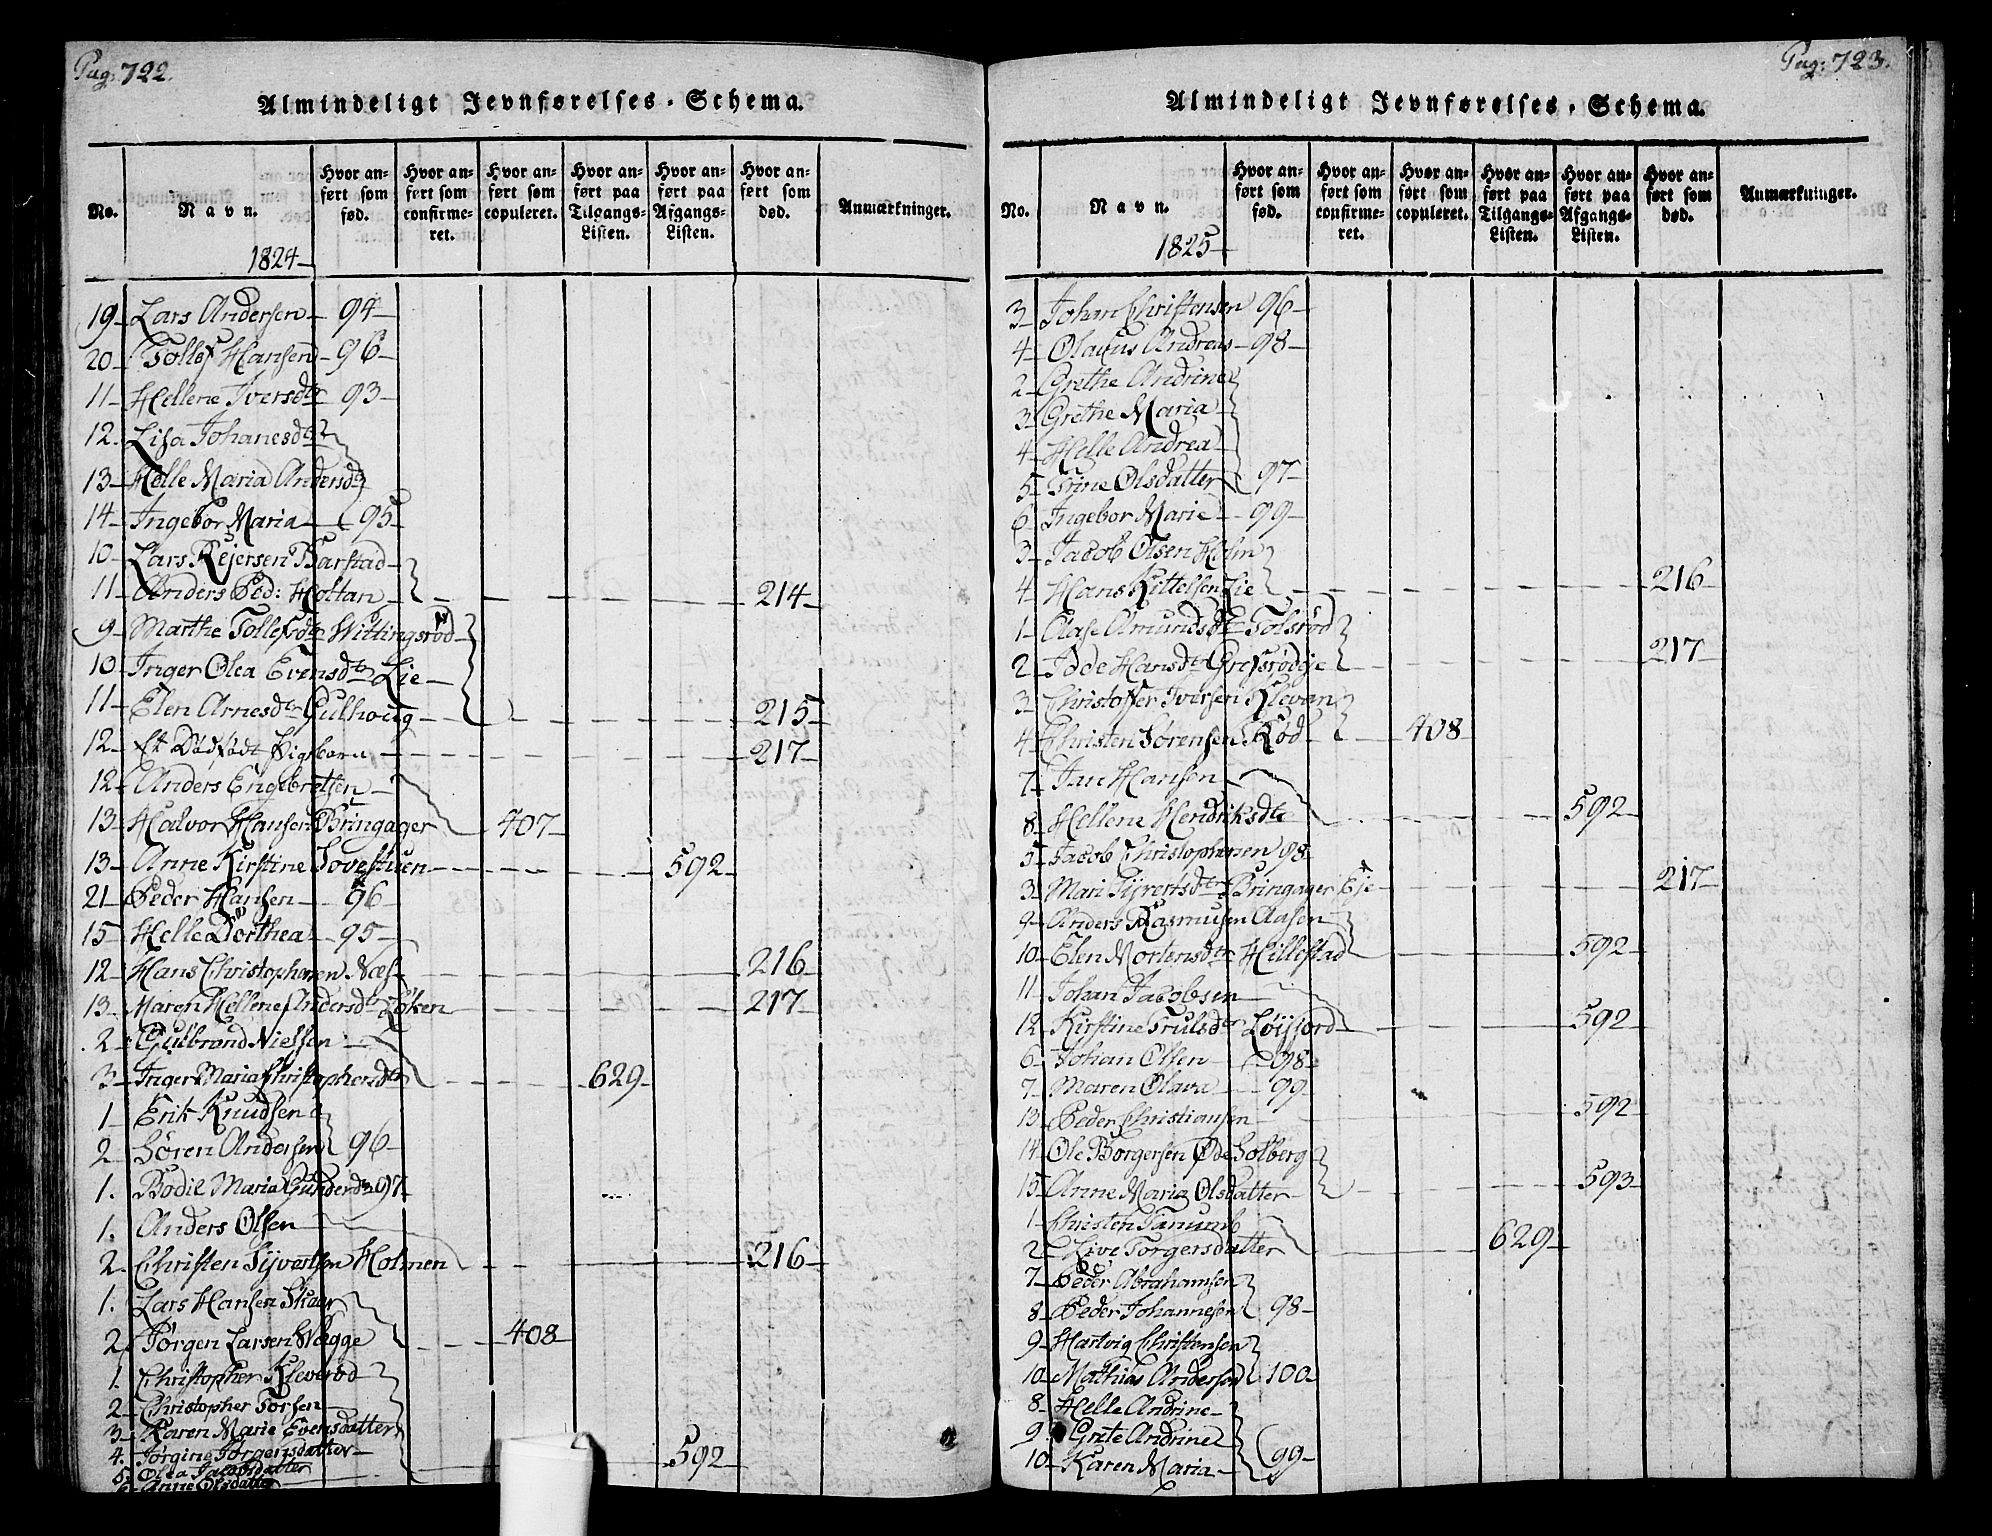 Pag: 722.
Almindeligt Jevnførelses-Schema.
No.
Navn.
Hvor anført som fød.
Hvor anført som confirmeret.
Hvor anført som copuleret.
Hvor anført paa Tilgangs-Listen.
Hvor anført paa Afgangs-Listen.
Hvor anført som død.
Anmærkninger.
1824
19 Lars Andersen 94
20 Tollef Hansen 96
11 Hellene Iversdtr 93
12. Lisa Johanesdtr
13 Helle Maria Andersdtr
14 Ingebor Maria 95
10 Lars Rejersen Barstad
11 Anders Ped: Hottan 214
9 Marthe Tollefsdtr Wittingsrød
10 Inger Olea Evensdtr Lie
11 Elen Arnesdtr Gulhoug 215
12. Et Dødfødt Pigebarn 217
12 Anders Engebretsen
13 Halvor Hansen Bringager 407
13 Anne Kirstine Sovestuen 592
21 Peder Hansen 96
15 Helle Dorthea 95
12 Hans Christophersen Næs 216
13 Maren Hellene Andersdtr Løken 217
2 Gulbrand Nielsen
3 Inger Maria Christophersdtr 629
1 Erik Knudsen
2 Søren Andersen 96
1. Bodil Maria Gundersdtr 97
1. Anders Olsen
2. Christen Syvertsen Holmen 216
1. Lars Hansen Skaer
2. Jørgen Larsen Wegge 408
1. Christopher Kleverød
2 Christopher Torsen
3 Karen Marie Evensdatter
4. Jørgine Jørgensdatter 592
5. Olea Jacobsdatter
6. Anne Olsdatter
Pag: 723.
Almindeligt Jevnførelses-Schema.
No.
Navn.
Hvor anført som fød.
Hvor anført som confirmeret.
Hvor anført som copuleret.
Hvor anført paa Tilgangs-Listen.
Hvor anført paa Afgangs-Listen.
Hvor anført som død.
Anmærkninger.
1825
3 Johan Christensen 96
4 Olavus Andreas 98
2 Grethe Andrine
3 Grethe Maria
4 Helle Andrea
5 Trine Olsdatter 97
6 Ingebor Marie 99
3 Jacob Olsen Holm
4 Hans Kittelsen Lie 216
1 Aase Amundsdtr Tolsrød
2 Idde Hansdtr Grefsrødeje 217
3 Christoffer Iversen Klevan
4 Christen Sørensen Rød 408
7 Jan Hansen
8 Hellene Hendriksdtr 592
5 Jacob Christophersen 98
3 Mari Syvertsdtr Bringager Eje 217
9 Anders Rasmusen Aasen
10 Elen Mortensdtr Hillestad 592
11 Johan Jacobsen
12 Kirstine Trulsdtr Løyjord 592
6 Johan Olsen 98
7 Maren Olava 99
13 Peder Christiansen 592
14 Ole Borgersen Øde Solberg
15 Anne Maria Olsdatter 593
1 Christen Tanumb
2 Live Torgersdatter 629
7 Peder Abrahamsen
8 Peder Johannesen 98
9 Hartvig Christensen
10 Mathias Andersen 100
8 Helle Andrine
9. Grete Andrine
10 Karen Maria 99